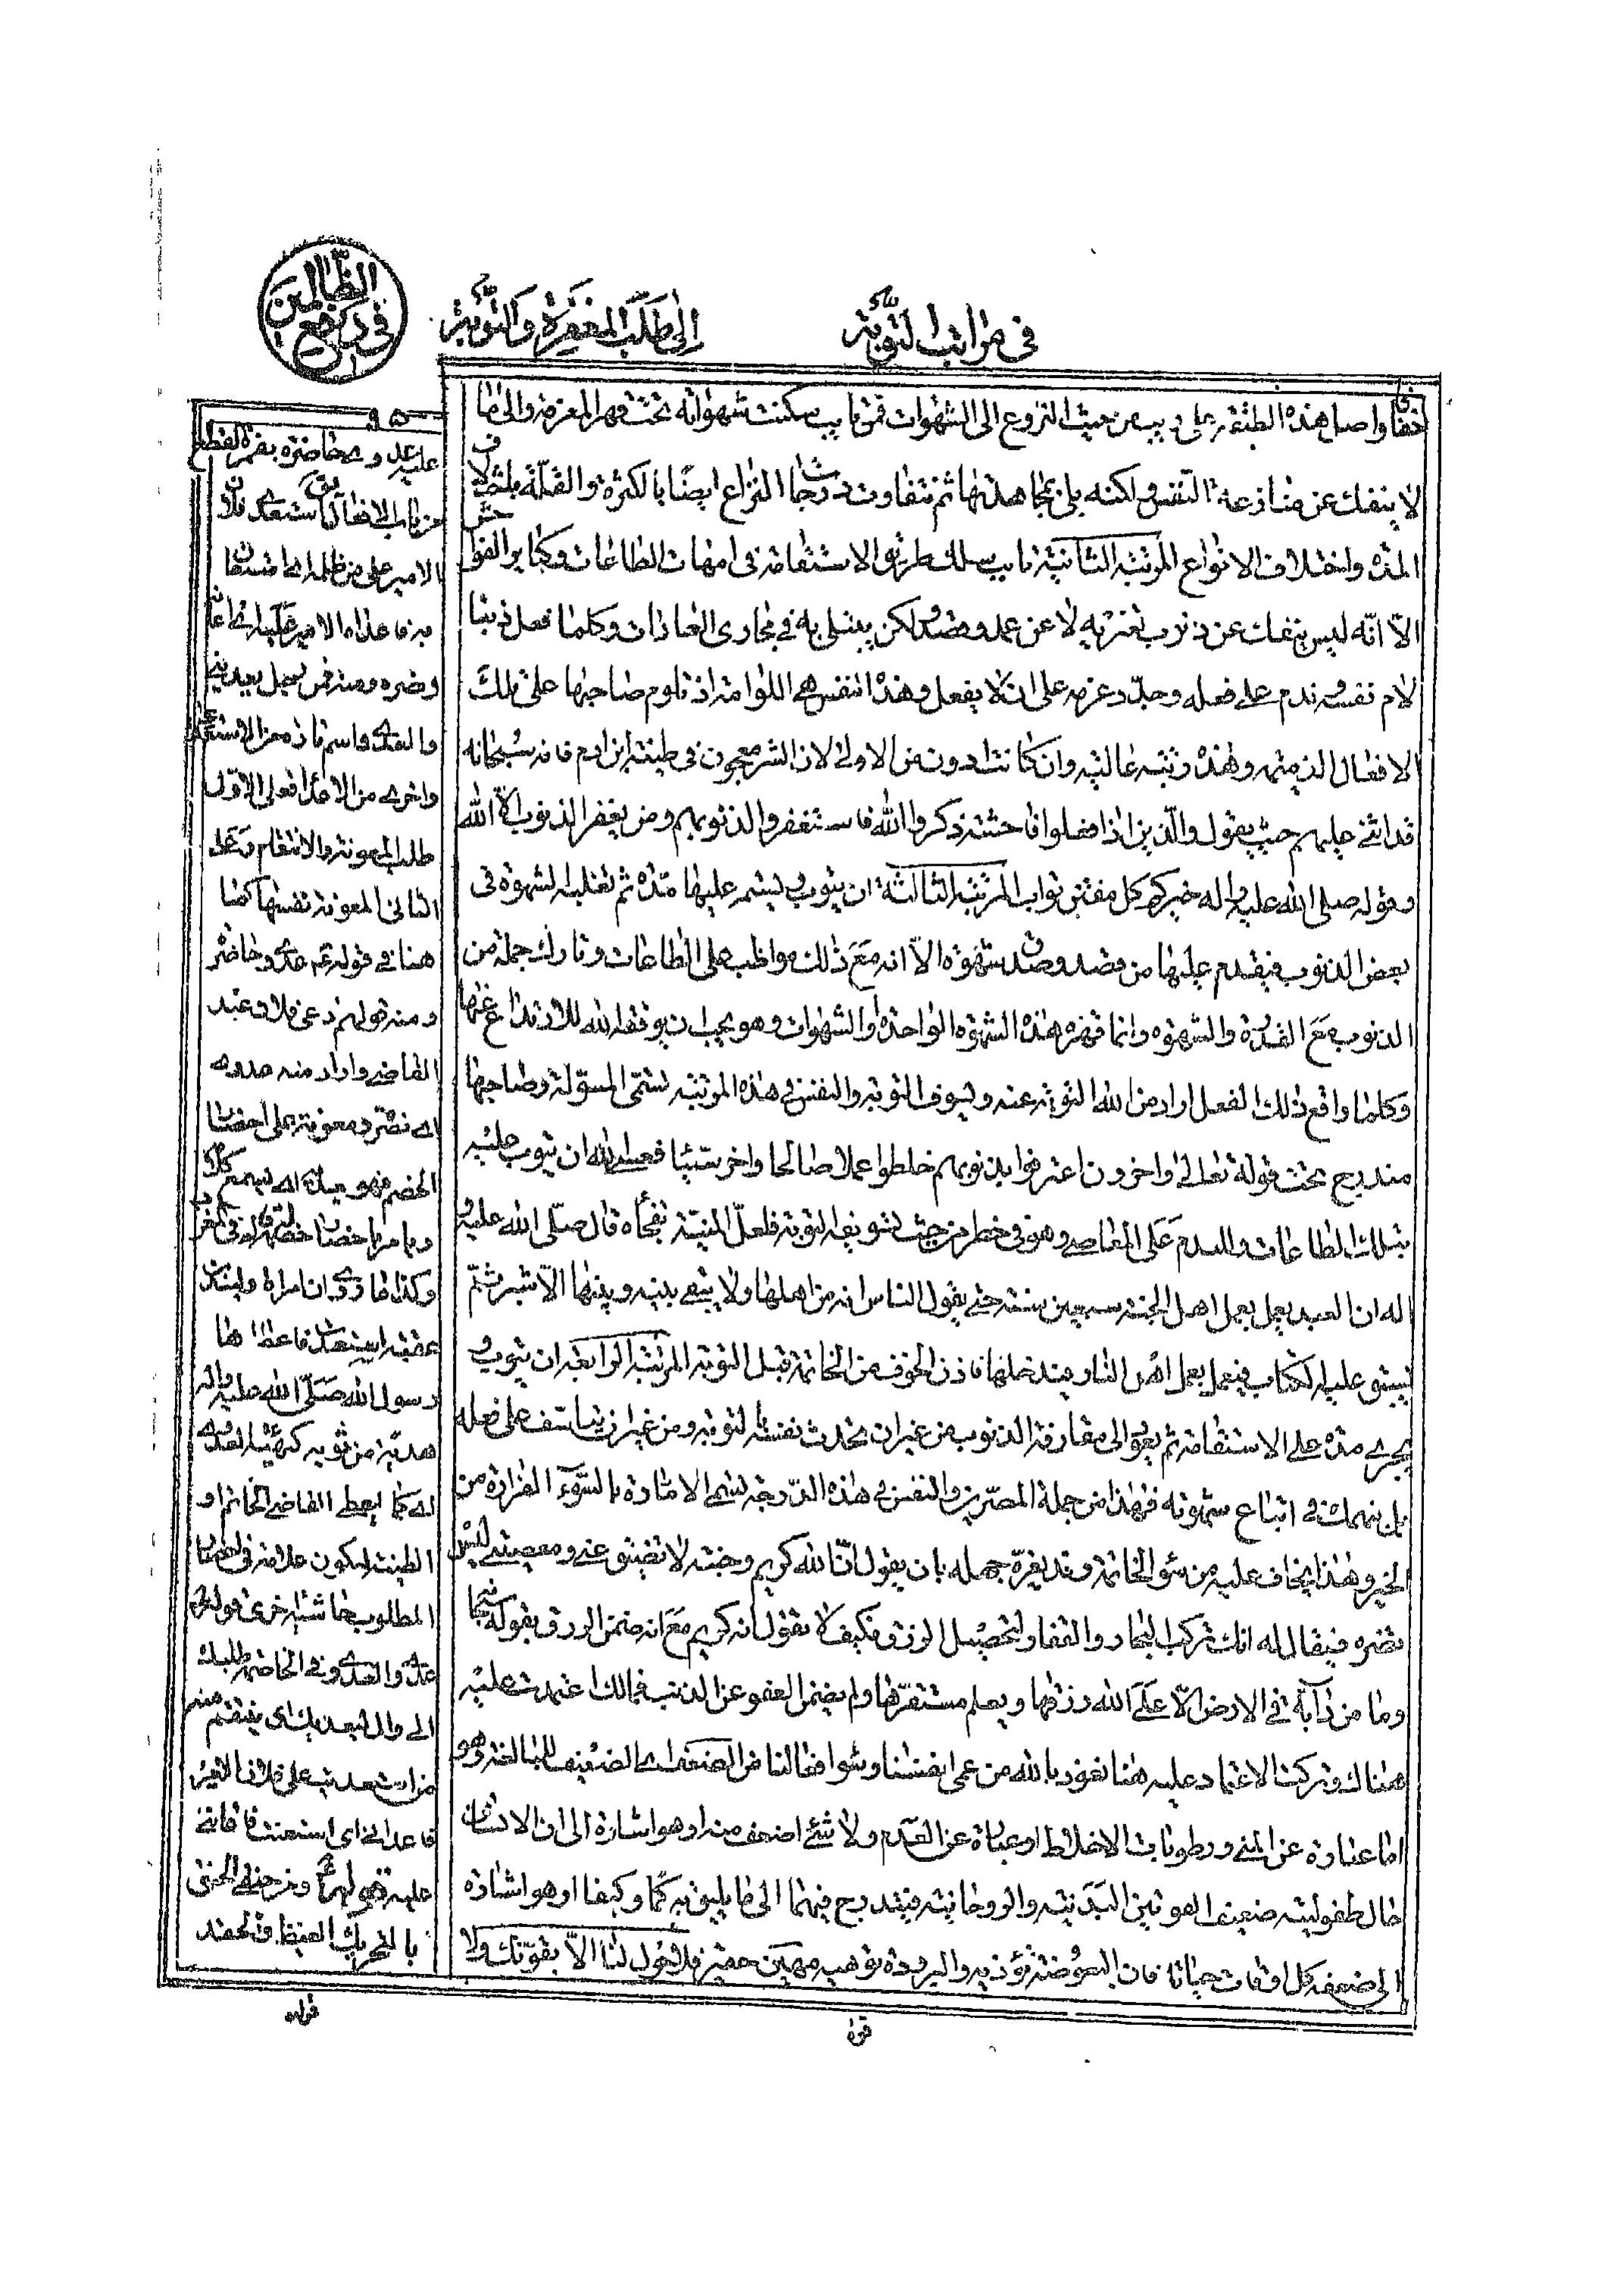 في مراتب التوبة
إلى طلب المغفرة والتوبة
الظالمين
في دفع
واصل هذه الطبقة على رتب من حيث النزوع الى الشهوات فمن تايب سكنت شهواته تحت قهر المعرفة والى ما
لا ينفك عن منازعة النفس ولكنه يلي بمجاهدتها ثم تتفاوت درجات النزاع ايضا بالكثرة والقلة باختلاف
المدة واختلاف الانواع المرتبة الثانية تايب سلك طريق الاستقامة في امهات الطاعات وكباير الفواحش
الا انه ليس ينفك عن ذنوب تعتريه لا عن عمد وقصد ولكن يبتلى به في مجاري العادات وكلما فعل ذنبا
لام نفسه وندم على فعله وجدد عزمه على ان لا يفعل وهذه النفس هي اللوامة اذ تلوم صاحبها على تلك
الافعال الذميمة وهذه رتبة عالية وان كانت ادون من الاولى لان الشر معجون في طينة ابن ادم فانه سبحانه
قد اثنى عليهم حيث يقول والذين اذا فعلوا فاحشة ذكروا الله فاستغفروا لذنوبهم ومن يغفر الذنوب الا الله
وبقوله صلى الله عليه واله خيركم كل مفتتن تواب المرتبة الثالثة ان يتوب ويستمر عليها مدة ثم تغلبه لشهوة في
بعض الذنوب فيقدم عليها من قصد وصدق شهوة الا انه مع ذلك مواظب على الطاعات وتارك جملة من
الذنوب مع القدرة والشهوه وانما قهره هذه الشهوه الواحدة او الشهوات وهو يحب ان يوفقه الله للارتداع عنها
وكلما واقع ذلك الفعل اراد من الله التوبة عنه ويسوف التوبة والنفس في هذه المرتبة تسمى المسولة وصاحبها
مندرج تحت قوله تعالى واخرون اعترفوا بذنوبهم خلطوا عملا صالحا واخر سيئا فعسى الله ان يتوب عليه
بتلك الطاعات والندم على المعاصي وهو في خطر من حيث تسويفه التوبة فلعل المنية تفجأه قال صلى الله عليه و
اله ان العبد يعمل بعمل اهل الجنة سبعين سنة حتى يقول الناس انه من اهلها ولا يبقى بينه وبينها الا شبر ثم
يسبق عليه الكتاب فيعمل بعمل اهل النار فيدخلها فاذن الخوف من الخاتمة قبل التوبة المرتبة الرابعة ان يتوب و
يجري مدة على الاستقامة ثم يعود الى مقارفة الذنوب من غير ان يحدث نفسه بالتوبة ومن غير ان يتاسف على فعله
بل ينهمك في اتباع شهوته فهذا من جملة المصرين والنفس في هذه الدرجة تسمى الامارة بالسوء الفرارة من
الخير وهذا يخاف عليه من سوء الخاتمة وقد يغره جهله بان يقول ان الله كريم وجنته لا تضيق عني ومعصيتي ليس
تضره فيقال له انك تركب البحار والقفار لتحصيل الرزق فكيف لا تقول انه كريم مع انه ضمن الرزق بقوله سبحانه
وما من دآبة في الارض الا على الله رزقها ويعلم مستقرها ولم يضمن العفو عن الذنب فمالك اعتمدت عليه
هناك وتركت الاعتماد عليه هنا نعوذ بالله من عمى انفسنا وسوء افعالنا من الضعف اي الضعيف للمبالغة وهو
اما عبارة عن المني ورطوبات الاخلاط او عبارة عن العدم ولا شئ اضعف منه او هو اشارة الى ان الانسان
حال طفوليته ضعيف القوتين البدنية والروحانية فيتدرج فيهما الى ما يليق به كما وكيفا او هو اشارة
الى ضعفه كل اوقات حياته فان البعوضة تؤذيه والبرودة توهيه مهين حقير فلا حول لنا الا بقوتك ولا
قوة
٩٥
عليه عدوى حاضره
من باب الافعال يق استعدى فلان
الامير على من ظلمه اي استعان
به فاعداه الامير عليه اي اعانه
ونصره ومنه فمن رجل يعديني
والعدوى اسم
واخرى من الاعداء فعلى الاول
طلب المعونة والانتقام وعلى
الثاني المعونة نفسها كما
هنا في قوله عدوى حاضره
ومنه قولهم دعى فلان عند
القاضي واراد منه عدوى
اي نصره ومعونة على احضار
الخصم فهو
ويامر باحضار خصمه
وكذا ما روي ان امراة وليد بن
عقبة استعدت فاعطاها
رسول الله صلى الله عليه واله
هدبة من ثوبه كهيئة العدوى
اي كما يعطي القاضي الخاتم او
الطينة ليكون علامة في احضار
المطلوب حاشية اخرى قوله
عدوى والعدوى في الحاضر طلبك
الى وال ليعديك اي ينتقم منه
من استعديت على فلان الامير
فاعداني اي استعنت فاعانني
عليه قوله ومن حنقي الحنق
بالتحريك الغيظ والحقد
قوله